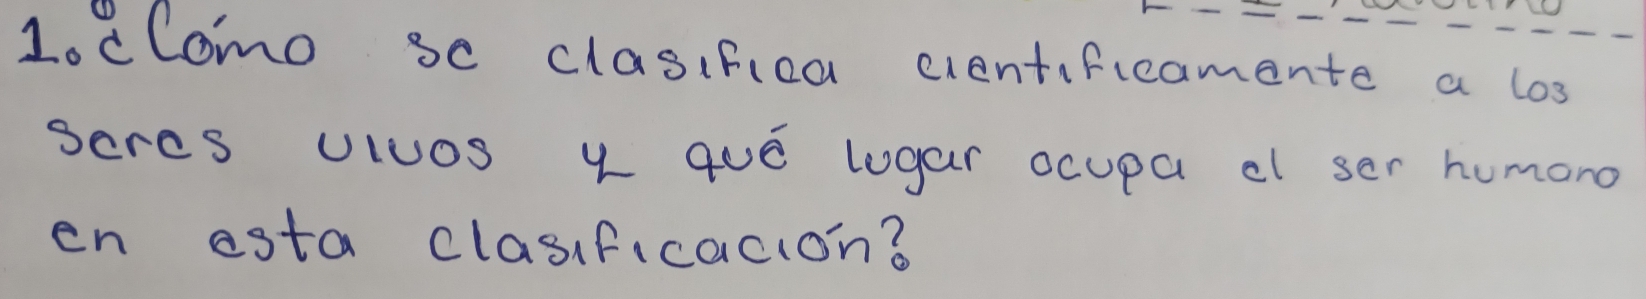 1. ¿Cómo se clasifica cientificamente a los
seres vivos y qué lugar ocupa el ser humano
en esta clasificación?